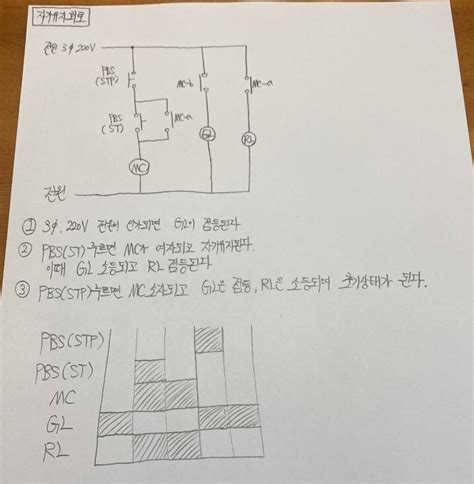 자기유지회로
전원 3φ 220V
PBS
(STP)
MC-b
MC-a
PBS
(ST)
MC-a
GL
RL
MC
전원
① 3φ. 220V 전원이 인가되면 GL이 점등된다
② PBS(ST) 누르면 MC가 여자되고 자기유지된다.
이때 GL 소등되고 RL 점등된다.
③ PBS(STP)누르면 MC소자되고 GL은 점등, RL은 소등되며 초기상태가 된다.
PBS(STP)
PBS(ST)
MC
GL
RL